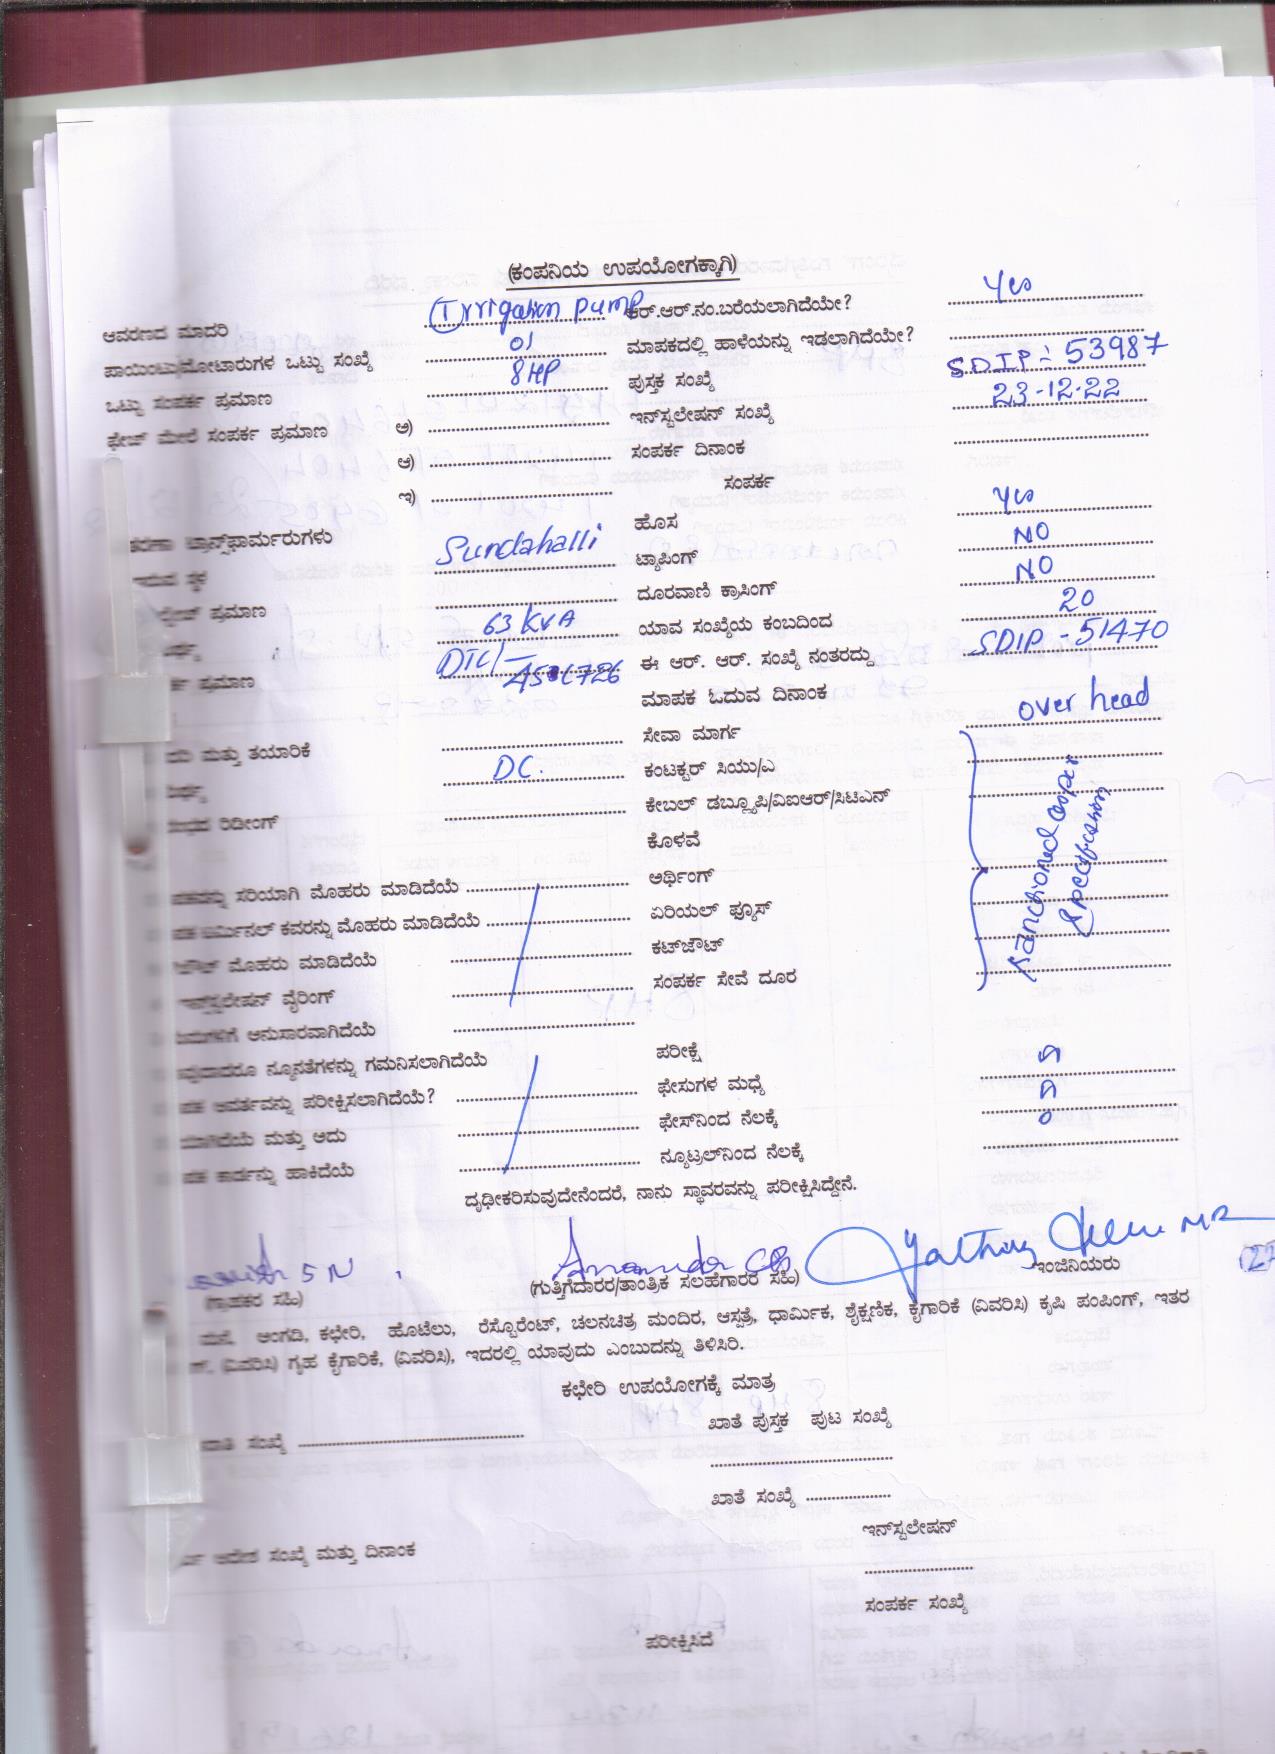 (ಕಂಪನಿಯ ಉಪಯೋಗಕ್ಕಾಗಿ)
ಆವರಣದ ಮಾದರಿ Irrigation pump ಆರ್.ಆರ್.ನಂ.ಬರೆಯಲಾಗಿದೆಯೇ? Yes
ಪಾಯಿಂಟು/ಮೋಟಾರುಗಳ ಒಟ್ಟು ಸಂಖ್ಯೆ 01 ಮಾಪಕದಲ್ಲಿ ಹಾಳೆಯನ್ನು ಇಡಲಾಗಿದೆಯೇ?
ಒಟ್ಟು ಸಂಪರ್ಕ ಪ್ರಮಾಣ 8 HP ಪುಸ್ತಕ ಸಂಖ್ಯೆ SDIP:- 53987
ಫೇಜ್ ಮೇಲೆ ಸಂಪರ್ಕ ಪ್ರಮಾಣ ಅ) ಇನ್‌ಸ್ಟಲೇಷನ್ ಸಂಖ್ಯೆ 23-12-22
ಆ) ಸಂಪರ್ಕ ದಿನಾಂಕ
ಇ) ಸಂಪರ್ಕ
ಟ್ರಾನ್ಸ್‌ಫಾರ್ಮರುಗಳು Sundahalli ಹೊಸ Yes
ಸ್ಥಳ ಟ್ಯಾಪಿಂಗ್ NO
ಪ್ರಮಾಣ 63 KVA ದೂರವಾಣಿ ಕ್ರಾಸಿಂಗ್ NO
ಯಾವ ಸಂಖ್ಯೆಯ ಕಂಬದಿಂದ 20
ಪ್ರಮಾಣ DTC/- ಈ ಆರ್. ಆರ್. ಸಂಖ್ಯೆ ನಂತರದ್ದು SDIP - 51470
ಮಾಪಕ ಓದುವ ದಿನಾಂಕ
ಮತ್ತು ತಯಾರಿಕೆ ಸೇವಾ ಮಾರ್ಗ over head
DC. ಕಂಟಕ್ಟರ್ ಸಿಯು/ಎ
ರಿಡೀಂಗ್ ಕೇಬಲ್ ಡಬ್ಲ್ಯೂಪಿ/ವಿಐಆರ್/ಸಿಟಿಎನ್
ಕೊಳವೆ
ಸರಿಯಾಗಿ ಮೊಹರು ಮಾಡಿದೆಯೆ ಅರ್ಥಿಂಗ್
ಟರ್ಮಿನಲ್ ಕವರನ್ನು ಮೊಹರು ಮಾಡಿದೆಯೆ ಏರಿಯಲ್ ಫ್ಯೂಸ್
ಮೊಹರು ಮಾಡಿದೆಯೆ ಕಟ್‌ಔಟ್
ಇನ್‌ಸ್ಟಲೇಷನ್ ವೈರಿಂಗ್ ಸಂಪರ್ಕ ಸೇವೆ ದೂರ
Sanctioned as per
ಅನುಸಾರವಾಗಿದೆಯೆ
ನ್ಯೂನತೆಗಳನ್ನು ಗಮನಿಸಲಾಗಿದೆಯೆ ಪರೀಕ್ಷೆ
ಆವರ್ತವನ್ನು ಪರೀಕ್ಷಿಸಲಾಗಿದೆಯೆ? ಫೇಸುಗಳ ಮಧ್ಯೆ
ಮತ್ತು ಅದು ಫೇಸ್‌ನಿಂದ ನೆಲಕ್ಕೆ
ಕಾರ್ಡನ್ನು ಹಾಕಿದೆಯೆ ನ್ಯೂಟ್ರಲ್‌ನಿಂದ ನೆಲಕ್ಕೆ
ದೃಢೀಕರಿಸುವುದೇನೆಂದರೆ, ನಾನು ಸ್ಥಾವರವನ್ನು ಪರೀಕ್ಷಿಸಿದ್ದೇನೆ.
(ಗ್ರಾಹಕರ ಸಹಿ) (ಗುತ್ತಿಗೆದಾರರ/ತಾಂತ್ರಿಕ ಸಲಹೆಗಾರರ ಸಹಿ) ಇಂಜಿನಿಯರು
ಮನೆ, ಅಂಗಡಿ, ಕಛೇರಿ, ಹೊಟೆಲು, ರೆಸ್ಟೊರೆಂಟ್, ಚಲನಚಿತ್ರ ಮಂದಿರ, ಆಸ್ಪತ್ರೆ, ಧಾರ್ಮಿಕ, ಶೈಕ್ಷಣಿಕ, ಕೈಗಾರಿಕೆ (ವಿವರಿಸಿ) ಕೃಷಿ ಪಂಪಿಂಗ್, ಇತರ
(ವಿವರಿಸಿ) ಗೃಹ ಕೈಗಾರಿಕೆ, (ವಿವರಿಸಿ), ಇದರಲ್ಲಿ ಯಾವುದು ಎಂಬುದನ್ನು ತಿಳಿಸಿರಿ.
ಕಛೇರಿ ಉಪಯೋಗಕ್ಕೆ ಮಾತ್ರ
ಸಂಖ್ಯೆ ಖಾತೆ ಪುಸ್ತಕ ಪುಟ ಸಂಖ್ಯೆ
ಖಾತೆ ಸಂಖ್ಯೆ
ಇನ್‌ಸ್ಟಲೇಷನ್
ಆದೇಶ ಸಂಖ್ಯೆ ಮತ್ತು ದಿನಾಂಕ
ಸಂಪರ್ಕ ಸಂಖ್ಯೆ
ಪರೀಕ್ಷಿಸಿದೆ